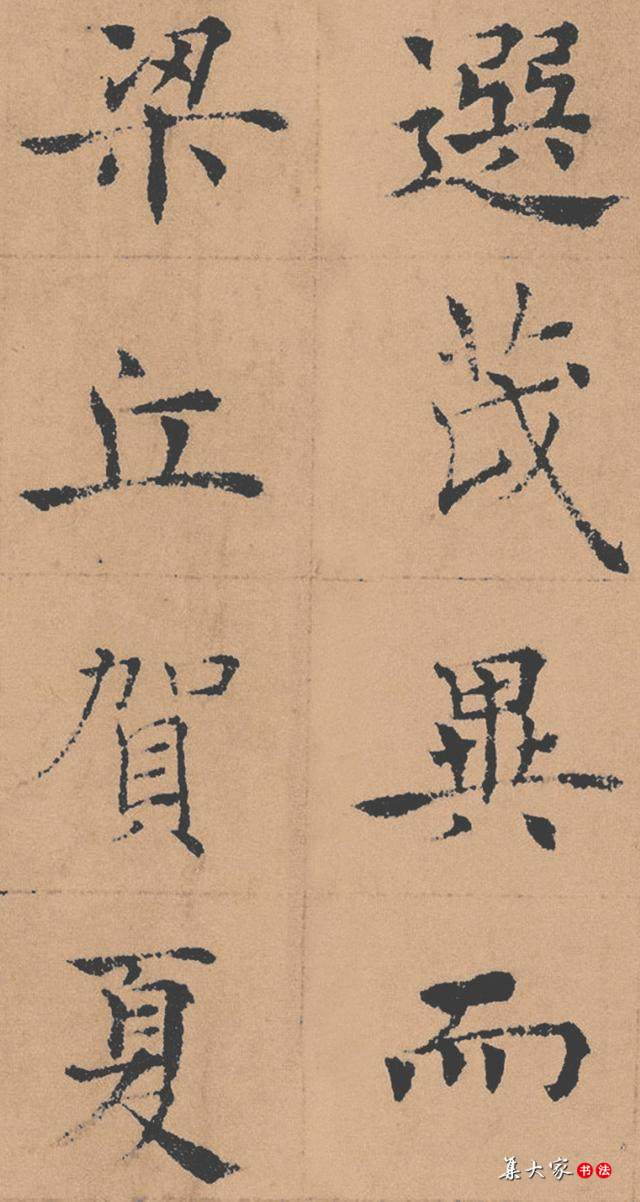 選茂異而
梁丘賀夏
集大家书法